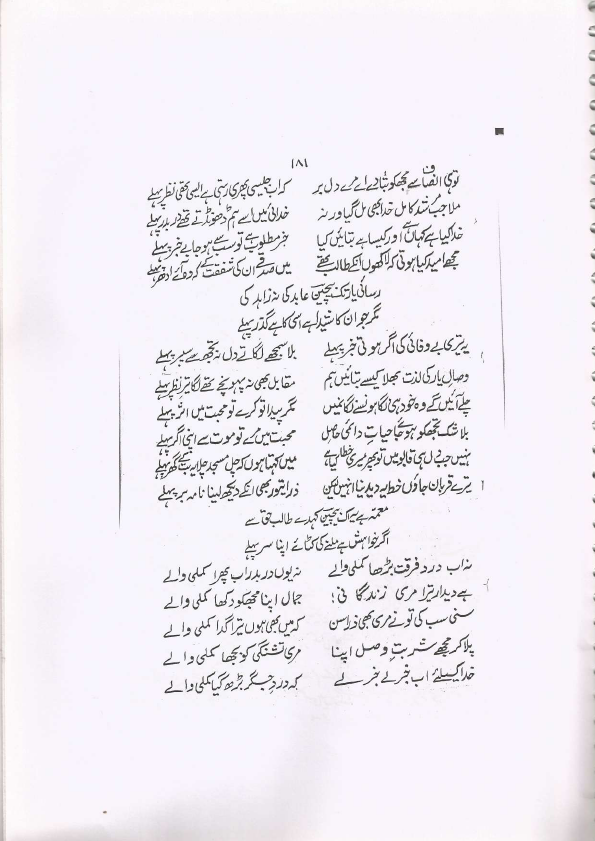 ۱۸۱
توہی انصاف سے مجھکو بتادے اے مرے دل بر کہ اب جلیسی پھری رہتی ہے ایسی تھی نظر پہلے
ملا جب مرشد کامل خدا بھی مل گیا ورنہ خدائی میں اسے ہم ڈھونڈتے تھے دربدر پہلے
خدا کیا ہے کہاں ہے اور کیسا ہے بتائیں کیا خبر مطلوب ہے تو سب سے ہو جا بے خبر پہلے
مجھے امید کیا ہوتی کہ لاکھوں انکے طالب تھے میں صدقے ان کی شفقت کے کہ وہ آئے ادھر پہلے
رسائی یار تک بیچین عابد کی نہ زاہد کی
مگر جو ان کا شیدا ہے اسی کا ہے گذر پہلے
یہ تیری بے وفائی کی اگر ہوتی خبر پہلے بلا سمجھے لگاتے دل نہ تجھ سے سیمبر پہلے
وصال یار کی لذت بھلا کیسے بتائیں ہم مقابل بھی نہ پہونچے تھے لگا تیر نظر پہلے
چلے آئیں گے وہ خود ہی لگا ہونے لگا نہیں مگر پیدا تو کرے تو محبت میں اثر پہلے
بلا شک تجھکو ہو جائے حیات دائمی حاصل محبت میں مرے تو موت سے اپنی اگر پہلے
نہیں جب دل ہی قابو میں تو پھر میری خطا کیا ہے میں کہتا ہوں کہ چل مسجد چلا ریت گھر پہلے
ترے قربان جاؤں خط یہ دیدینا انہیں لیکن ذرا تیور بھی انکے دیکھ لینا نامہ بر پہلے
معمہ ہے یہ اک بیچین کہدے طالب حق سے
اگر خواہش ہے ملنے کی کٹائے اپنا سر پہلے
نہ اب درد فرقت بڑھا کملی والے نہ یوں دربدر اب پھرا کملی والے
ہے دیدار ترا مری زندگانی! جمال اپنا مجھکو دکھا کملی والے
سنی سب کی تو نے مری بھی ذرا سن کہ میں بھی ہوں تیرا گدا کملی والے
پلا کر مجھے شربت وصل اپنا مری تشنگی کو بجھا کملی والے
خدا کیلئے اب خبر لے خبر لے کہ درد جگر بڑھ گیا کملی والے